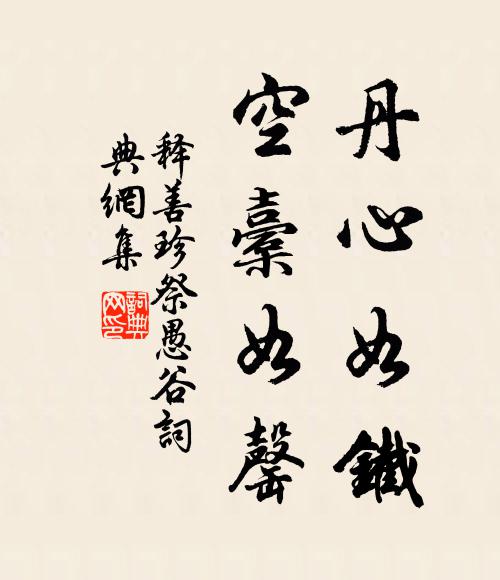 丹心如鐵
空橐如罄
釋善珍祭愚谷詞
典網集
詞典網印